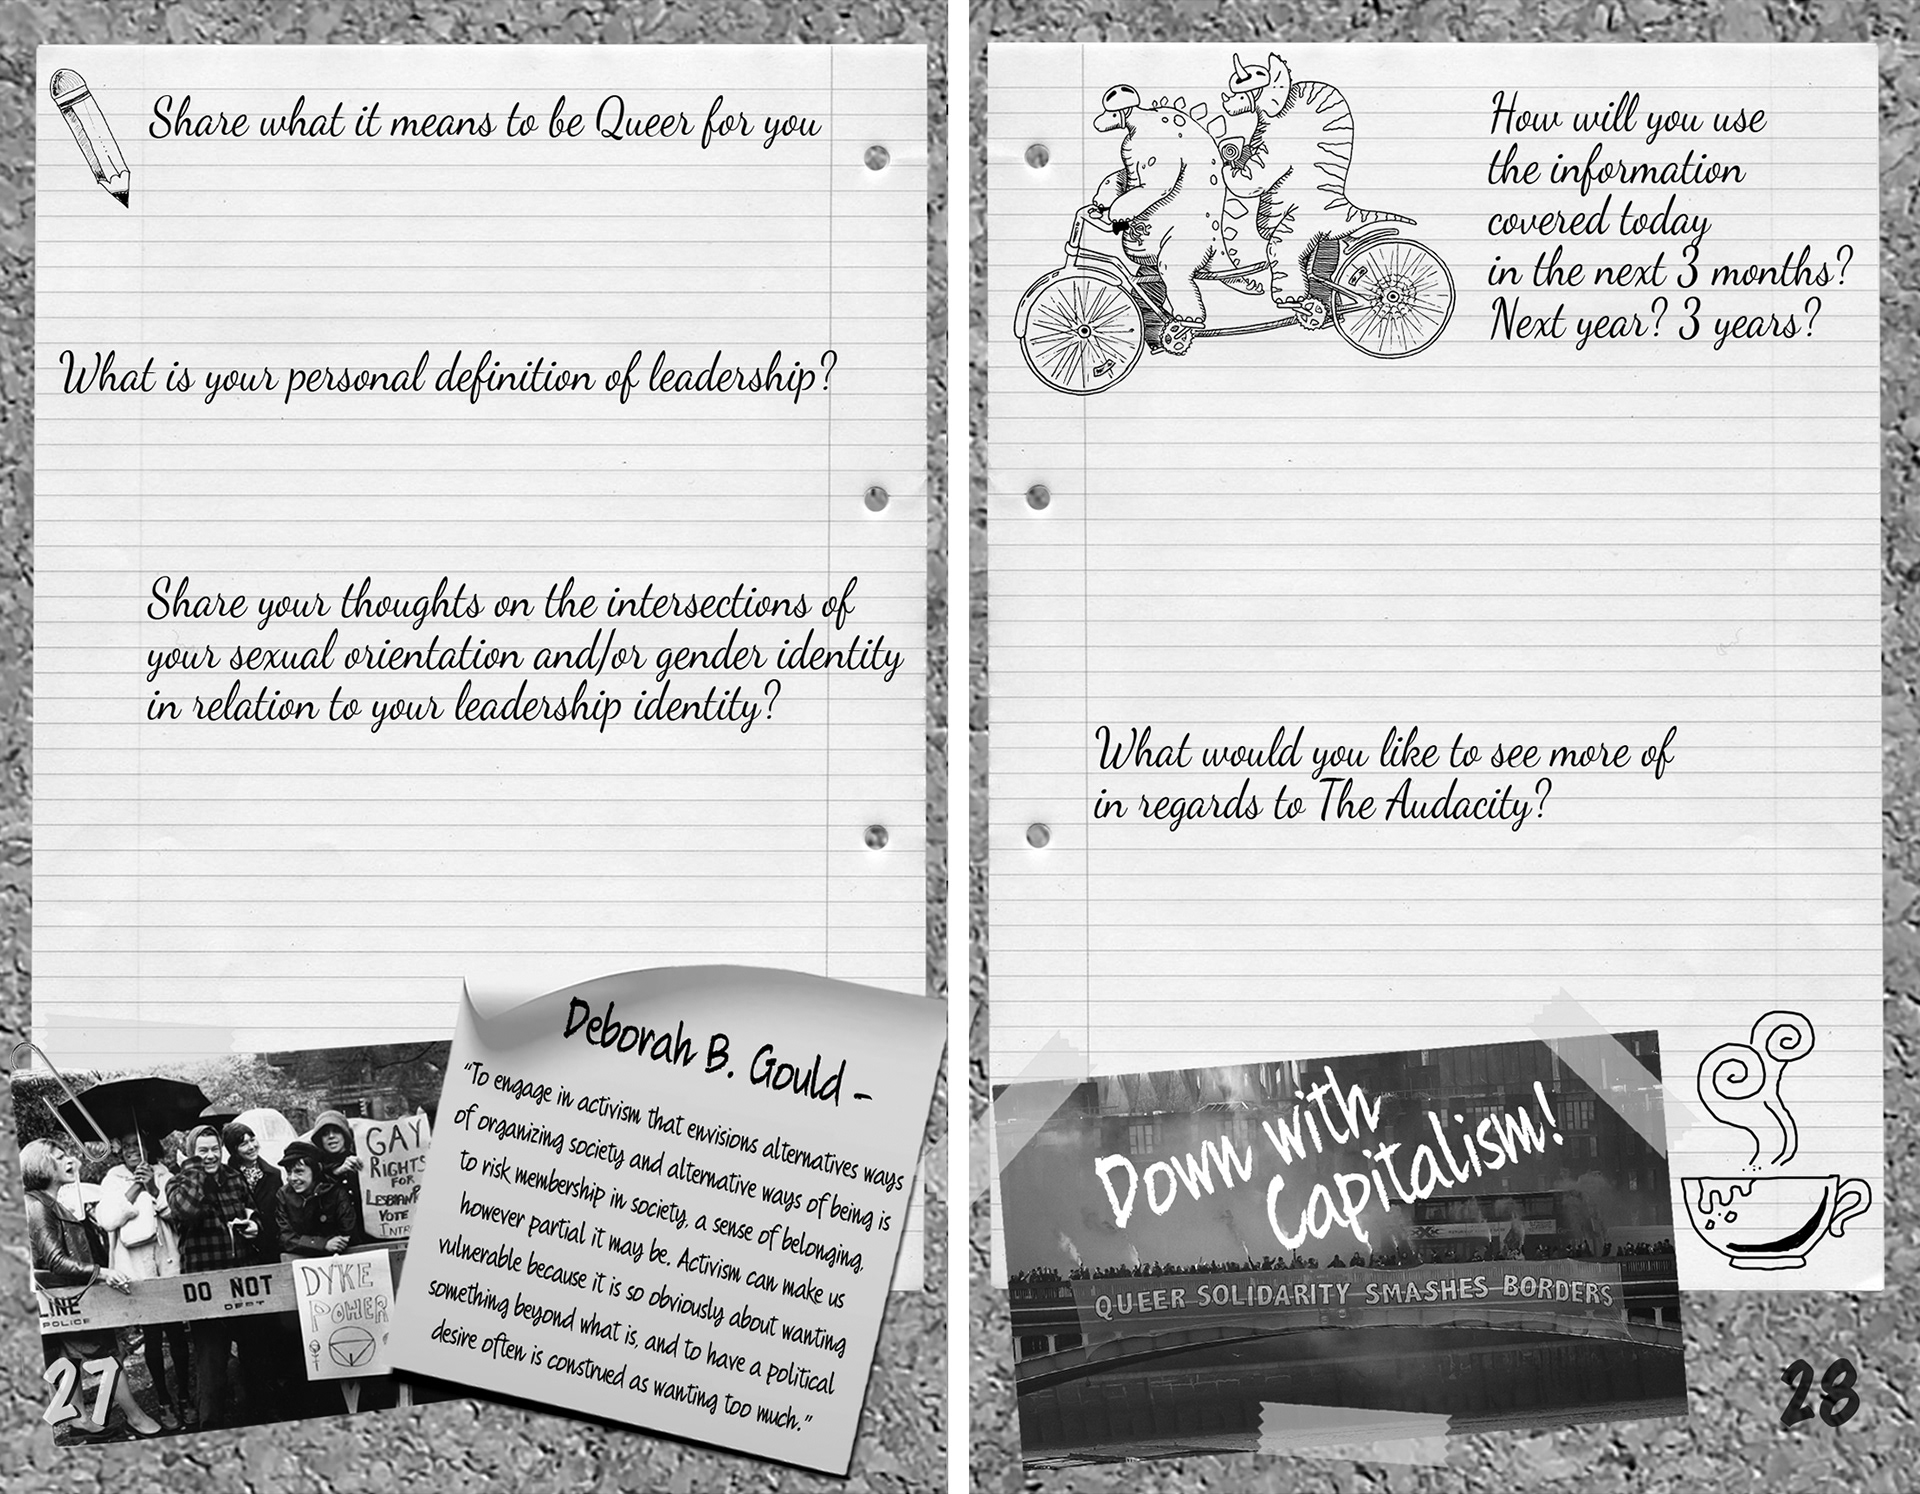 Share what it means to be Queer for you
What is your personal definition of leadership?
Share your thoughts on the intersections of
your sexual orientation and/or gender identity
in relation to your leadership identity?
Deborah B. Gould -
"To engage in activism that envisions alternatives ways
of organizing society and alternative ways of being is
to risk membership in society, a sense of belonging,
however partial it may be. Activism can make us
vulnerable because it is so obviously about wanting
something beyond what is, and to have a political
desire often is construed as wanting too much."
GAY
RIGHTS
FOR
LESBIANS
VOTE
DO NOT
LINE
POLICE
DEPT
DYKE
POWER
27
How will you use
the information
covered today
in the next 3 months?
Next year? 3 years?
What would you like to see more of
in regards to The Audacity?
Down with
Capitalism!
QUEER SOLIDARITY SMASHES BORDERS
28